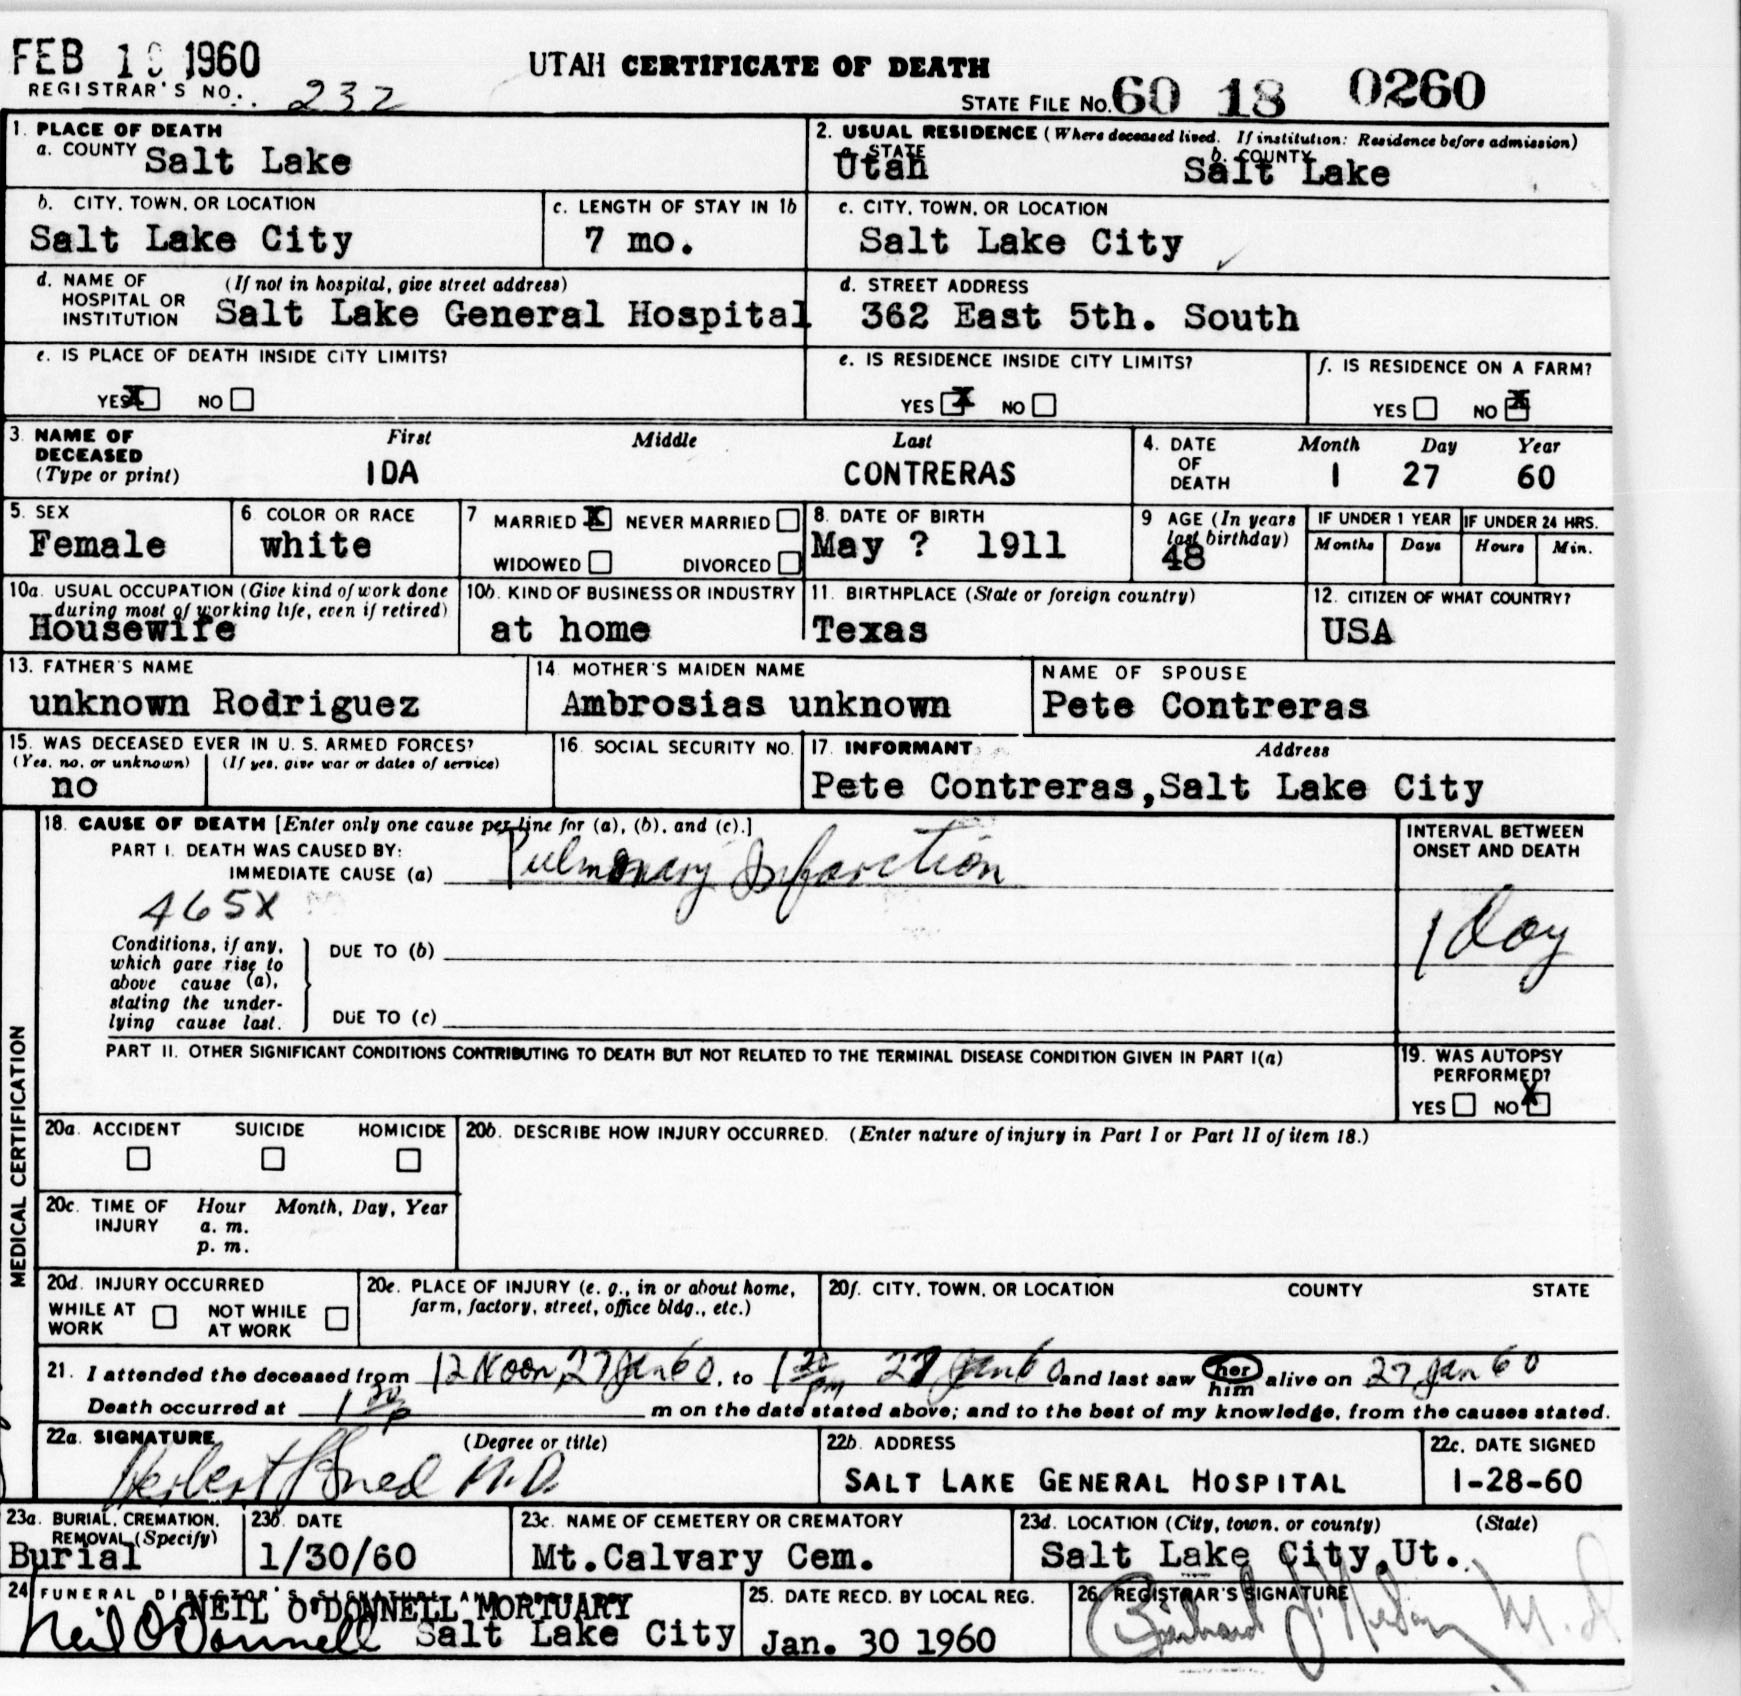 FEB 1 1960
UTAH CERTIFICATE OF DEATH
REGISTRAR'S NO. 232
STATE FILE NO. 60 18 0260
1. PLACE OF DEATH
a. COUNTY Salt Lake
2. USUAL RESIDENCE (Where deceased lived. If institution: Residence before admission)
a. STATE Utah b. COUNTY Salt Lake
b. CITY, TOWN, OR LOCATION
Salt Lake City
c. LENGTH OF STAY IN 1b
7 mo.
c. CITY, TOWN, OR LOCATION
Salt Lake City
d. NAME OF HOSPITAL OR INSTITUTION (If not in hospital, give street address)
Salt Lake General Hospital
d. STREET ADDRESS
362 East 5th. South
e. IS PLACE OF DEATH INSIDE CITY LIMITS?
YES X NO
e. IS RESIDENCE INSIDE CITY LIMITS?
YES X NO
f. IS RESIDENCE ON A FARM?
YES NO X
3. NAME OF DECEASED (Type or print)
First Middle Last
IDA CONTRERAS
4. DATE OF DEATH
Month Day Year
1 27 60
5. SEX
Female
6. COLOR OR RACE
white
7 MARRIED X NEVER MARRIED
WIDOWED DIVORCED
8. DATE OF BIRTH
May ? 1911
9 AGE (In years last birthday)
48
IF UNDER 1 YEAR
Months Days
IF UNDER 24 HRS.
Hours Min.
10a. USUAL OCCUPATION (Give kind of work done during most of working life, even if retired)
Housewife
10b. KIND OF BUSINESS OR INDUSTRY
at home
11. BIRTHPLACE (State or foreign country)
Texas
12. CITIZEN OF WHAT COUNTRY?
USA
13. FATHER'S NAME
unknown Rodriguez
14. MOTHER'S MAIDEN NAME
Ambrosias unknown
NAME OF SPOUSE
Pete Contreras
15. WAS DECEASED EVER IN U. S. ARMED FORCES?
(Yes, no, or unknown) (If yes, give war or dates of service)
no
16. SOCIAL SECURITY NO.
17. INFORMANT Address
Pete Contreras,Salt Lake City
MEDICAL CERTIFICATION
18. CAUSE OF DEATH [Enter only one cause per line for (a), (b), and (c).]
PART I. DEATH WAS CAUSED BY:
IMMEDIATE CAUSE (a) Pulmonary Infarction
465X
Conditions, if any, which gave rise to above cause (a), stating the underlying cause last.
DUE TO (b)
DUE TO (c)
INTERVAL BETWEEN ONSET AND DEATH
1 day
PART II. OTHER SIGNIFICANT CONDITIONS CONTRIBUTING TO DEATH BUT NOT RELATED TO THE TERMINAL DISEASE CONDITION GIVEN IN PART I(a)
19. WAS AUTOPSY PERFORMED?
YES NO X
20a. ACCIDENT SUICIDE HOMICIDE
20b. DESCRIBE HOW INJURY OCCURRED. (Enter nature of injury in Part I or Part II of item 18.)
20c. TIME OF INJURY Hour Month, Day, Year
a. m.
p. m.
20d. INJURY OCCURRED
WHILE AT WORK NOT WHILE AT WORK
20e. PLACE OF INJURY (e. g., in or about home, farm, factory, street, office bldg., etc.)
20f. CITY, TOWN, OR LOCATION COUNTY STATE
21. I attended the deceased from 12 Noon, 27 Jan 60, to 1 30 pm 27 Jan 60 and last saw her him alive on 27 Jan 60
Death occurred at 1 30 p m on the date stated above; and to the best of my knowledge, from the causes stated.
22a. SIGNATURE (Degree or title)
Herbert M.D.
22b. ADDRESS
SALT LAKE GENERAL HOSPITAL
22c. DATE SIGNED
1-28-60
23a. BURIAL, CREMATION, REMOVAL (Specify)
Burial
23b. DATE
1/30/60
23c. NAME OF CEMETERY OR CREMATORY
Mt.Calvary Cem.
23d. LOCATION (City, town, or county) (State)
Salt Lake City,Ut.
24 FUNERAL DIRECTOR'S SIGNATURE AND
NEIL O'DONNELL MORTUARY
Neil O'Donnell Salt Lake City
25. DATE RECD. BY LOCAL REG.
Jan. 30 1960
26. REGISTRAR'S SIGNATURE
M.D.